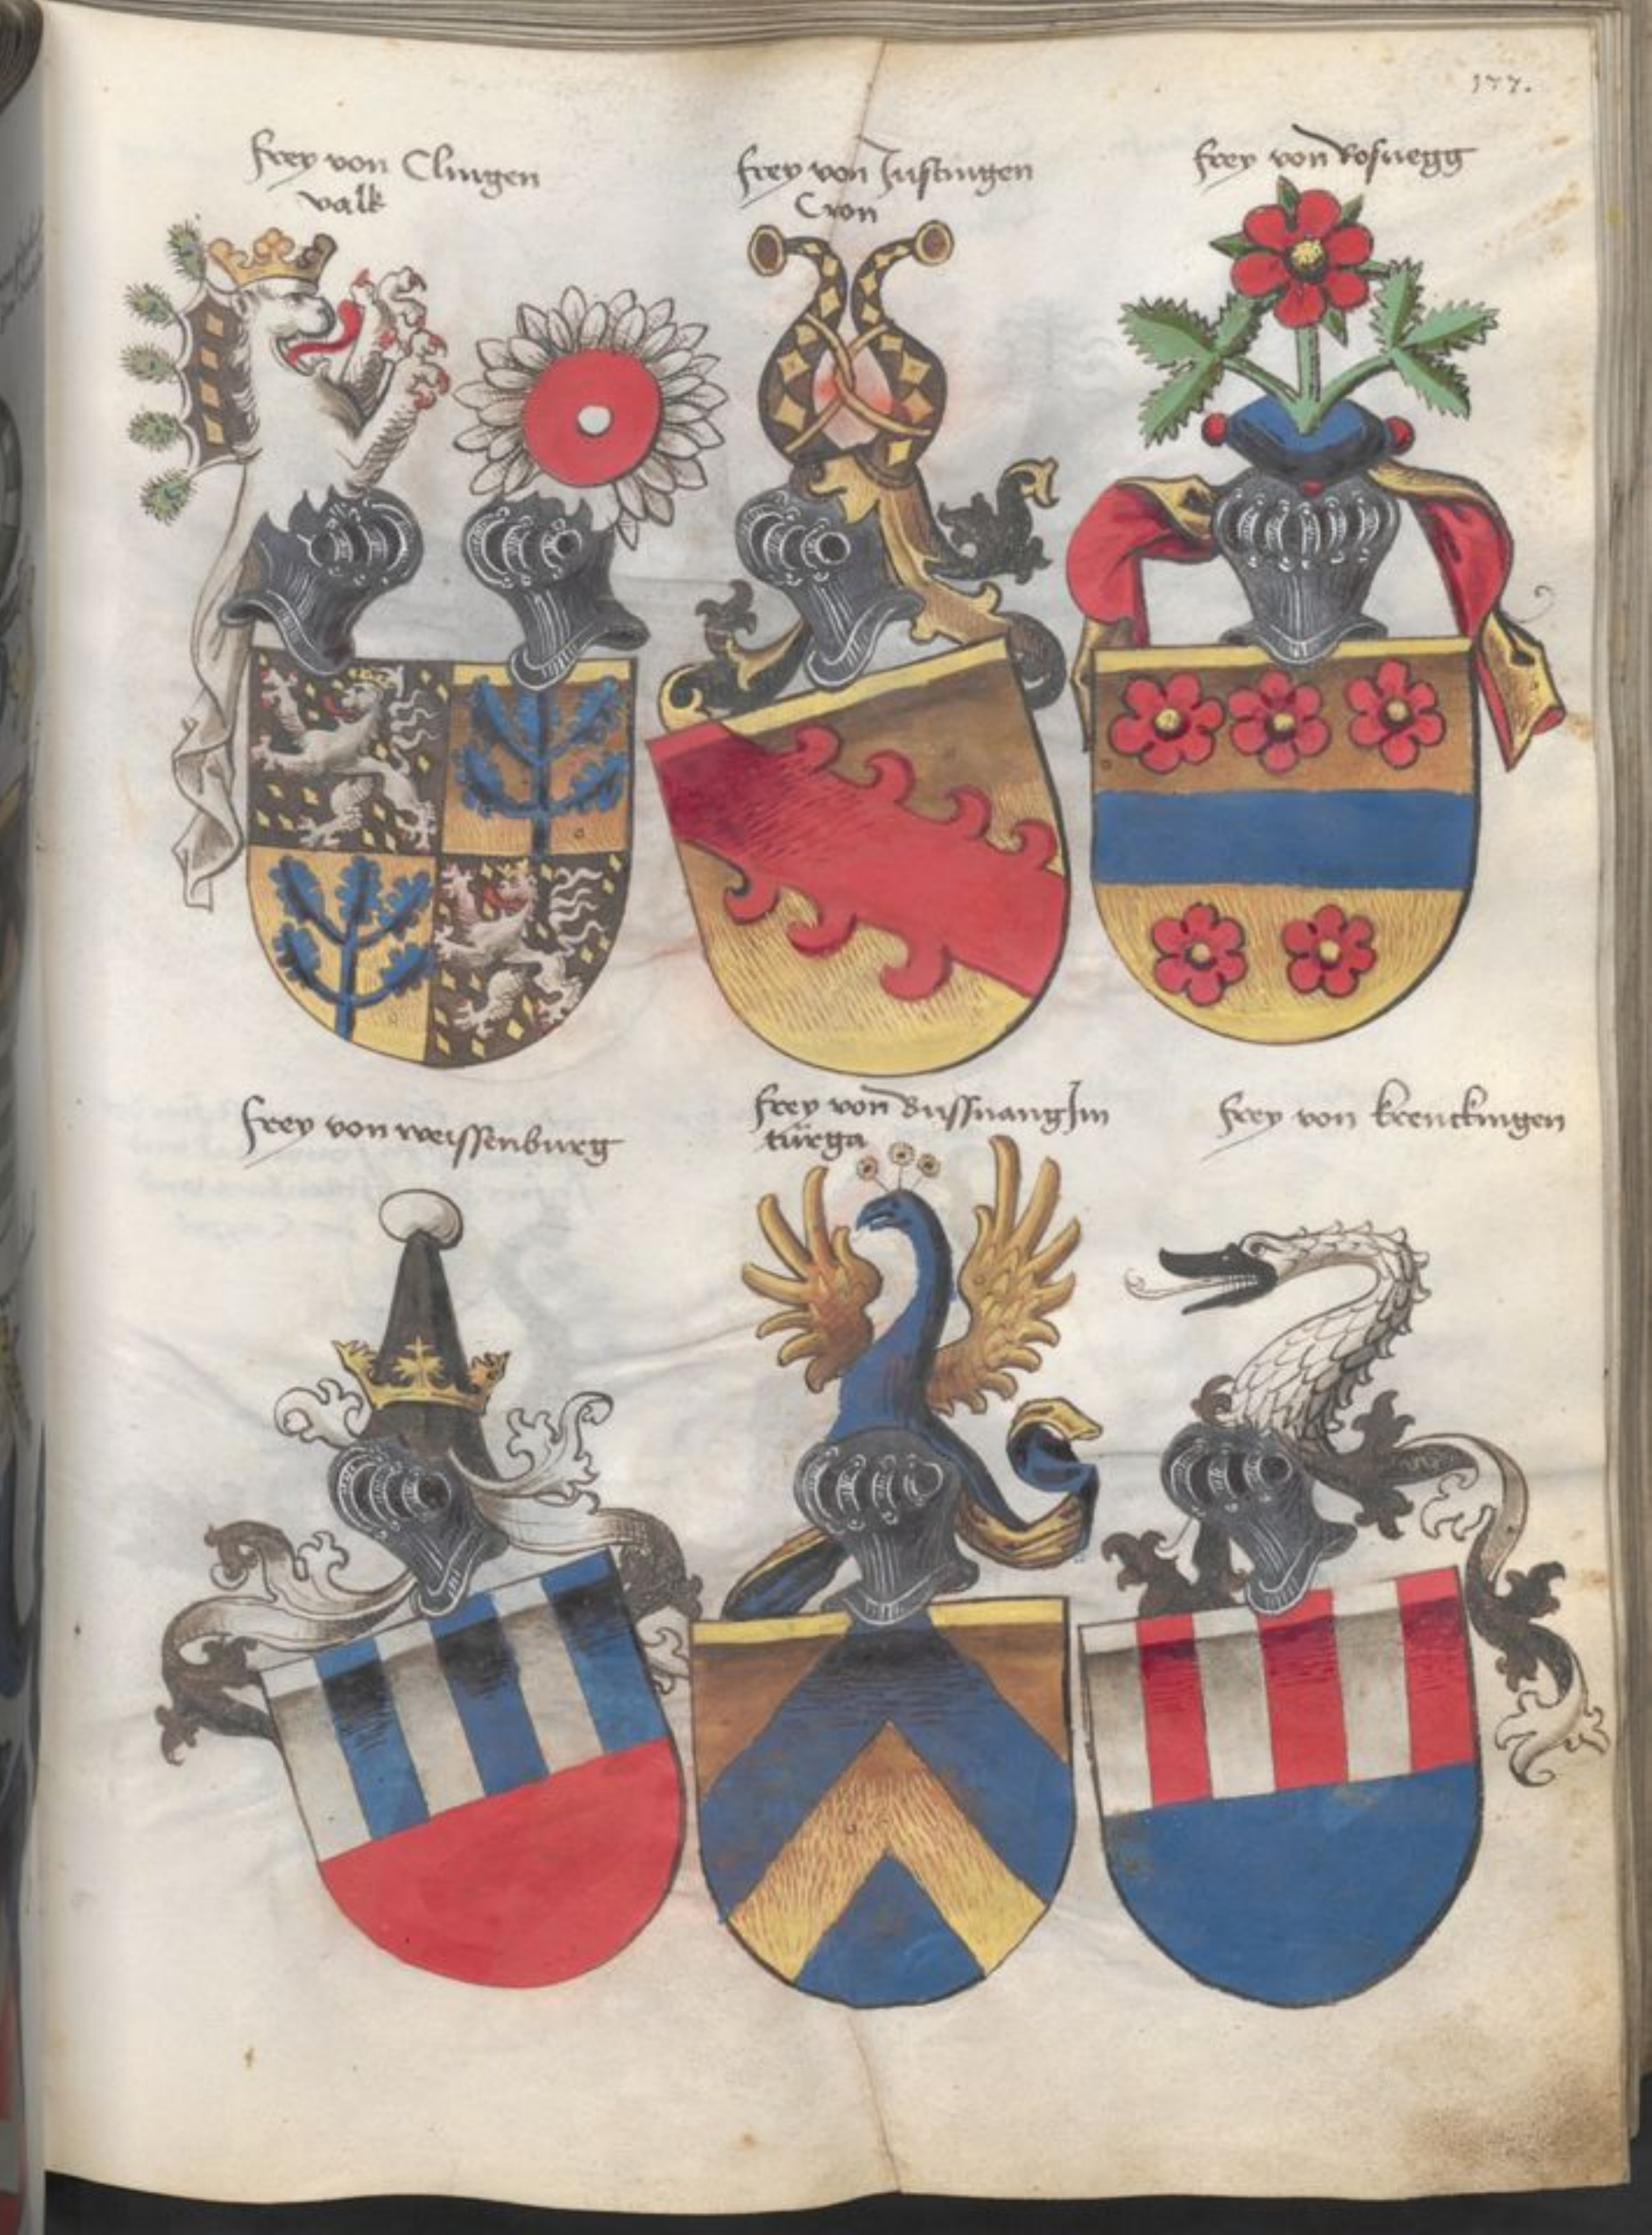 177.
Frey von Clingen
valk
Frey von Justingen
Cron
Frey von Rosnegg
Frey von weissenburg
Frey von Bussnang Jm
türga
Frey von krenckingen